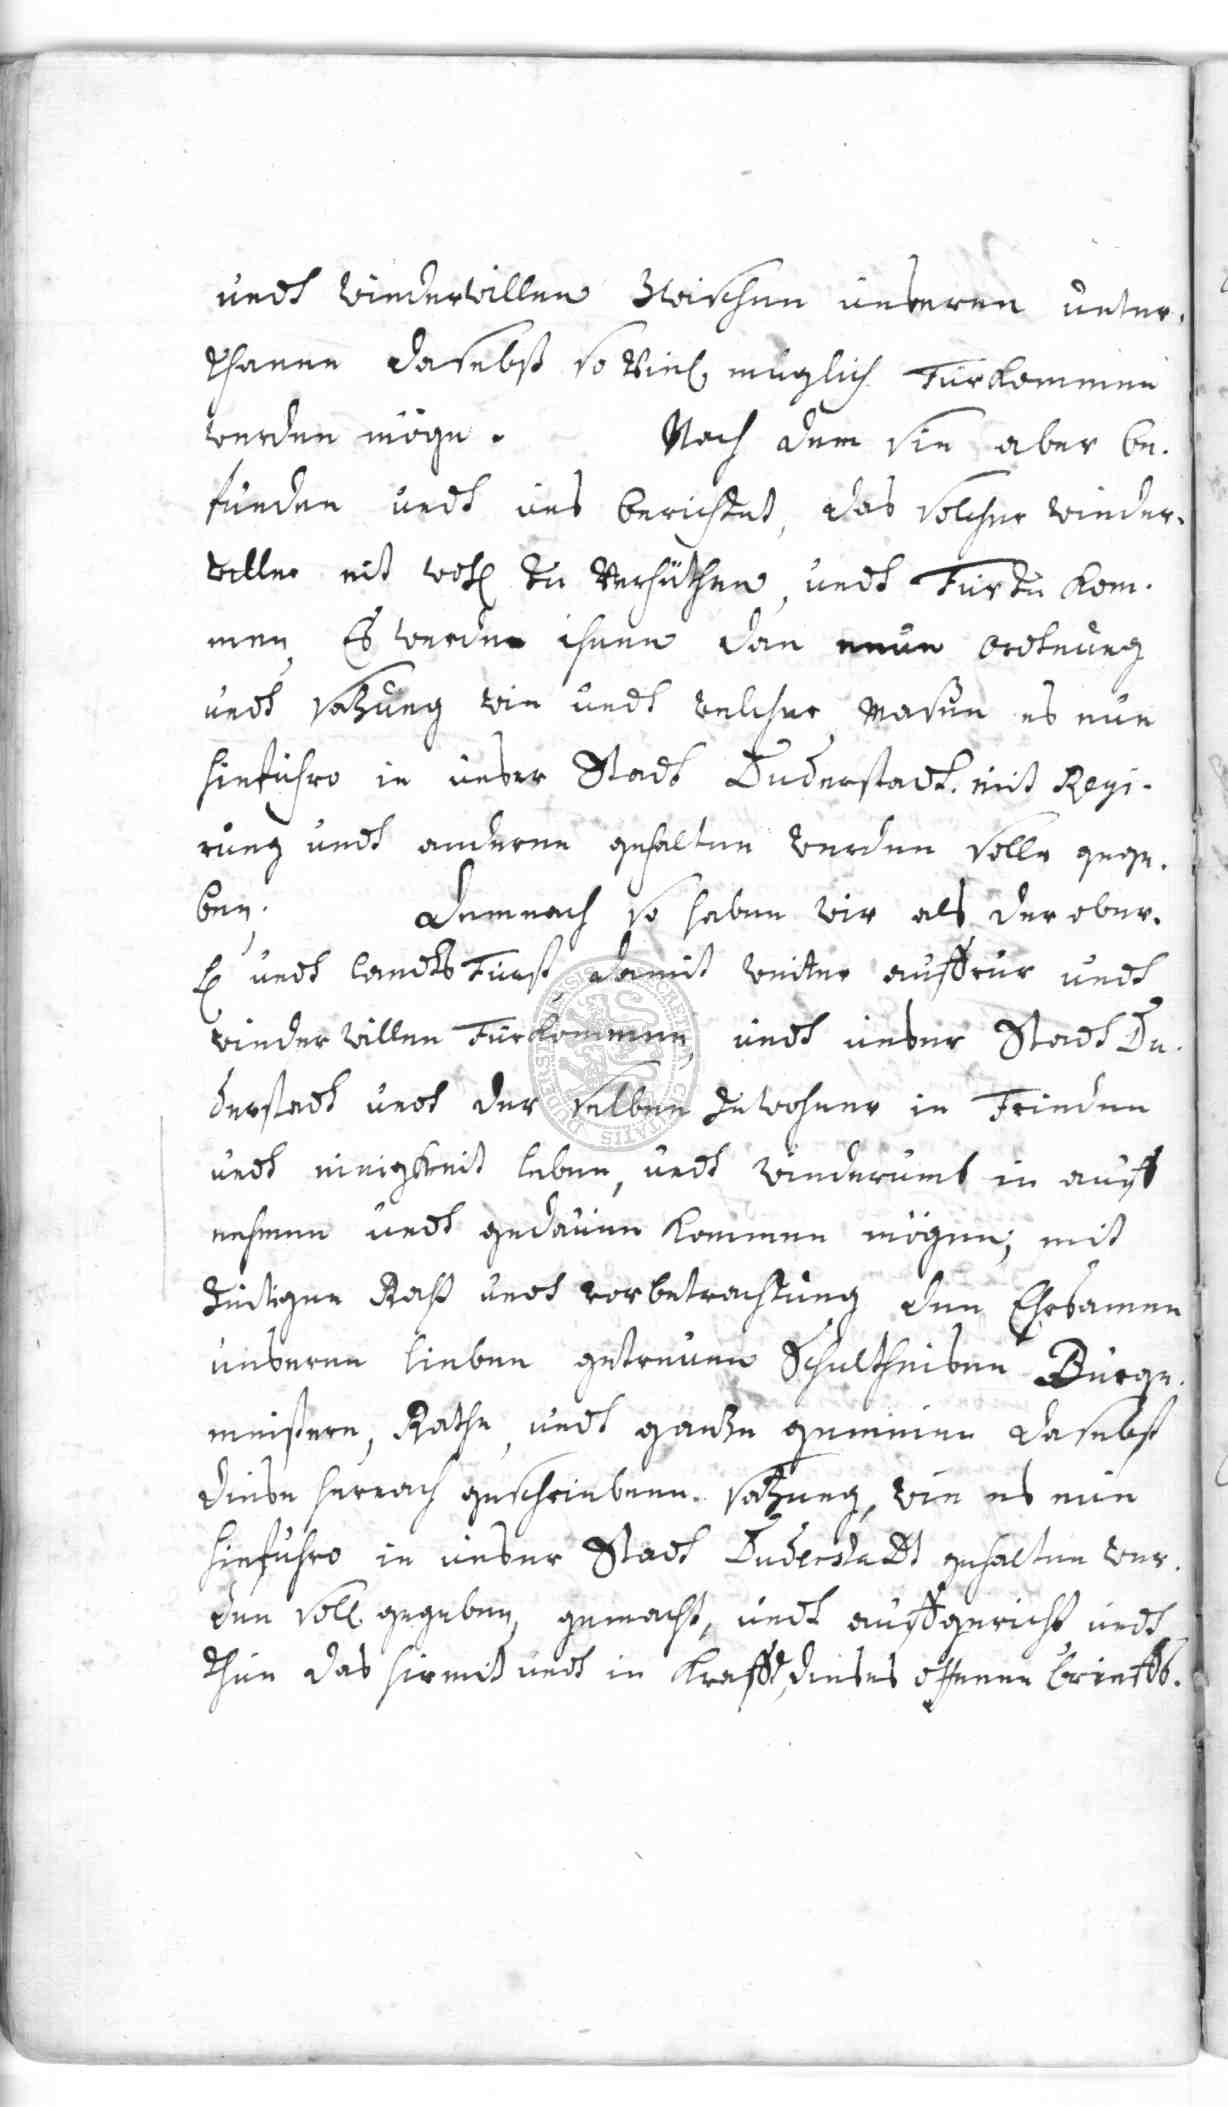 undt wiederwillen Zwischen unseren unter-
thanen daselbst so Viel müglich Fürkommen
werden möge. Nach dem sie aber be-
funden undt uns berichtet, das solcher wieder-
wille nit woll zu Verhüthen, undt Für zu kom-
men, Es werde ihnen dan neue ordtnung
undt satzung wie undt welcher masen es nun
hinfuhro in unser Stadt Duderstadt. mit Regi-
rung undt anderen gehalten werden solle gege-
ben. demnach so haben wir als der ober-
undt landts Fürst damit weiter auffrur undt
wieder willen Fürkommen, undt unser Stadt Du-
derstadt undt der selben Inwohner in Frieden
undt einigkeit leben, undt wiederumb in auff
nehmen undt gedauen kommen mögen; mit
zeitigen Raht undt vorbetrachtung den Ehrsamen
unseren lieben getreuen Schultheisen Bürge-
meistern, Rathe, undt gantze gemeine daselbst
diese hernach geschriebene. satzung, wie es nun
hinfuhro in unser Stadt Duderstadt gehalten wer-
den soll. gegeben, gemacht, undt auffgericht undt
thun das hirmit undt in krafft, dieses offenen brieffs.
DUDERSTADIENSIS SECRETUM CIVITATIS